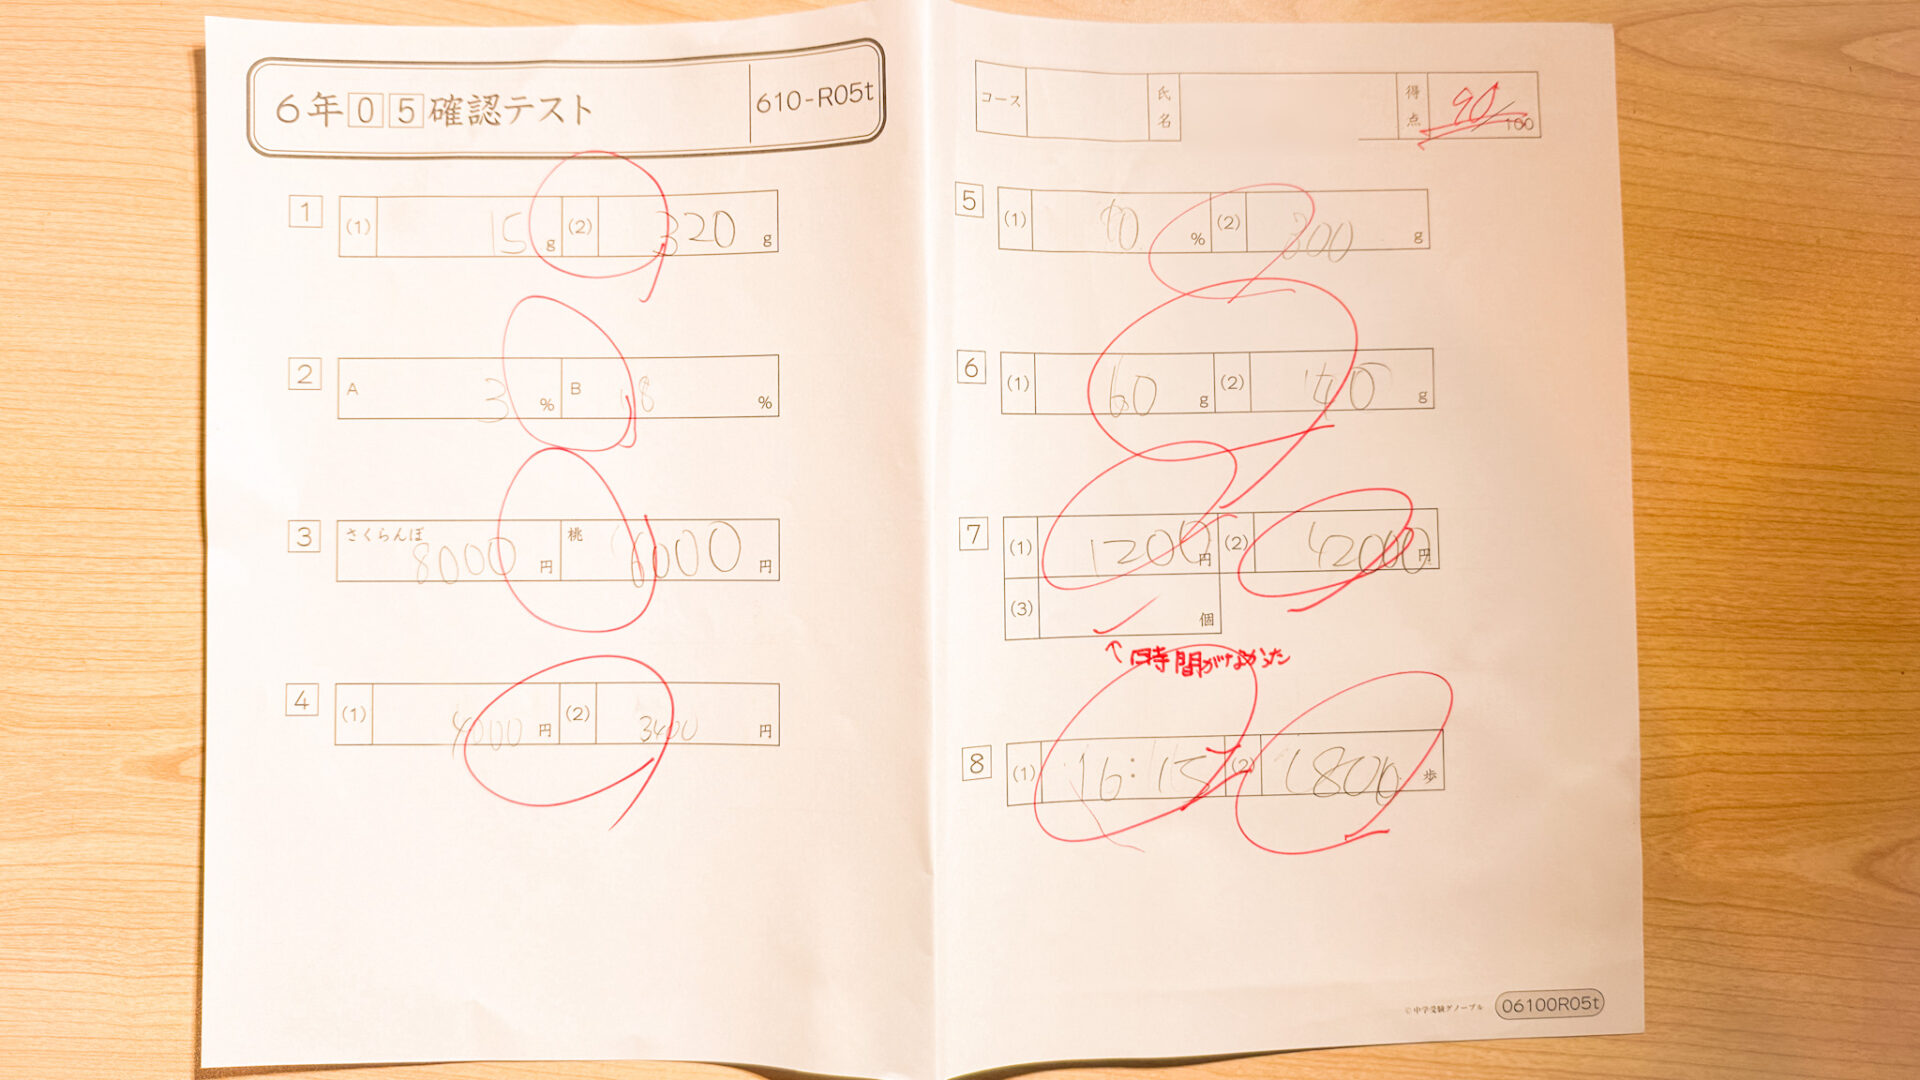 6年05確認テスト 610-R05t
コース 氏名 得点 90/100
1 (1) 15 g (2) 320 g
2 A 3 % B 18 %
3 さくらんぼ 8000 円 桃 6000 円
4 (1) 4000 円 (2) 3400 円
5 (1) 10 % (2) 300 g
6 (1) 60 g (2) 140 g
7 (1) 1200 円 (2) 42000 円
(3) 個
↑時間がなかった
8 (1) 16:15 (2) 1800 歩
©中学受験グノーブル 06100R05t